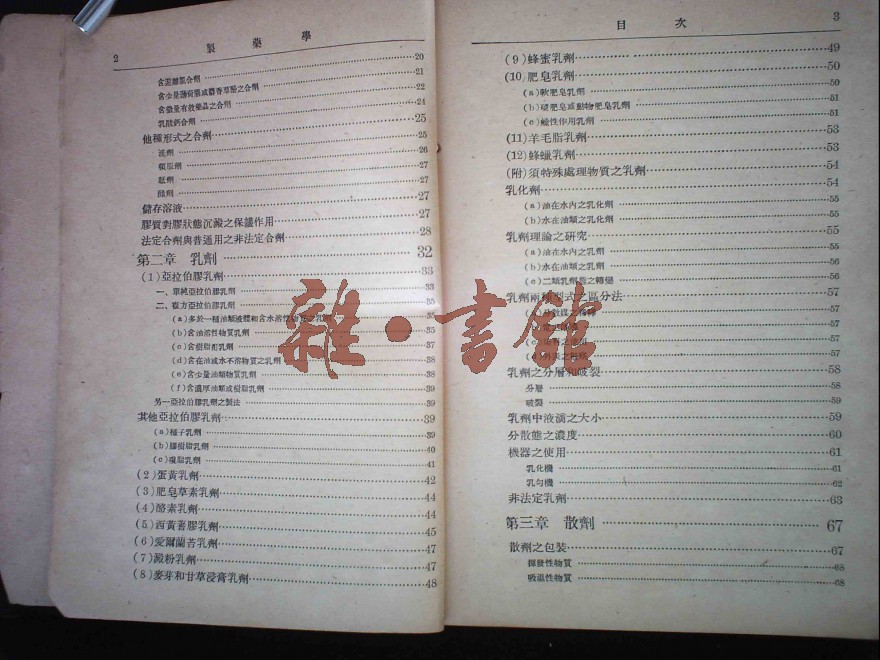 2 製藥學
含少量薄荷腦或麝香草酚之合劑 21
含微量有效藥品之合劑 22
乳酸鈣合劑 24
他種形式之合劑 25
洗劑 25
頓服劑 26
舐劑 27
27
儲存溶液 27
膠質對膠狀態沉澱之保護作用 27
法定合劑與普通用之非法定合劑 28
第二章 乳劑 32
(1)亞拉伯膠乳劑 33
一、單純亞拉伯膠乳劑 33
二、複方亞拉伯膠乳劑 35
(a)多於一種油類液體和含水溶性 35
(b)含油溶性物質乳劑 35
(c)含樹脂酊乳劑 37
(d)含在油或水不溶物質之乳劑 38
(e)含少量油類物質乳劑 38
(f)含濃厚油類或樹脂乳劑 39
另一亞拉伯膠乳劑之製法 39
其他亞拉伯膠乳劑 39
(a)種子乳劑 39
(b)膠樹脂乳劑 40
(c)複脂乳劑 41
(2)蛋黃乳劑 42
(3)肥皂草素乳劑 44
(4)酪素乳劑 44
(5)西黃蓍膠乳劑 45
(6)愛爾蘭苔乳劑 47
(7)澱粉乳劑 47
(8)麥芽和甘草浸膏乳劑 48
目次 3
(9)蜂蜜乳劑 49
(10)肥皂乳劑 50
(a)軟肥皂乳劑 50
(b)硬肥皂或動物肥皂乳劑 51
(c)鹼性作用乳劑 51
(11)羊毛脂乳劑 53
(12)蜂蠟乳劑 53
(附)須特殊處理物質之乳劑 54
乳化劑 54
(a)油在水內之乳化劑 55
(b)水在油類之乳化劑 55
乳劑理論之研究 55
(a)油在水內之乳劑 56
(b)水在油類之乳劑 56
(c)二類乳劑舊之轉變 56
乳劑兩種型式之區分法 57
57
57
57
58
乳劑之分層和破裂 58
分層 58
破裂 59
乳劑中液滴之大小 59
分散態之濃度 60
機器之使用 61
乳化機 61
乳勻機 62
非法定乳劑 63
第三章 散劑 67
散劑之包裝 67
揮發性物質 68
吸濕性物質 68
雜·書館